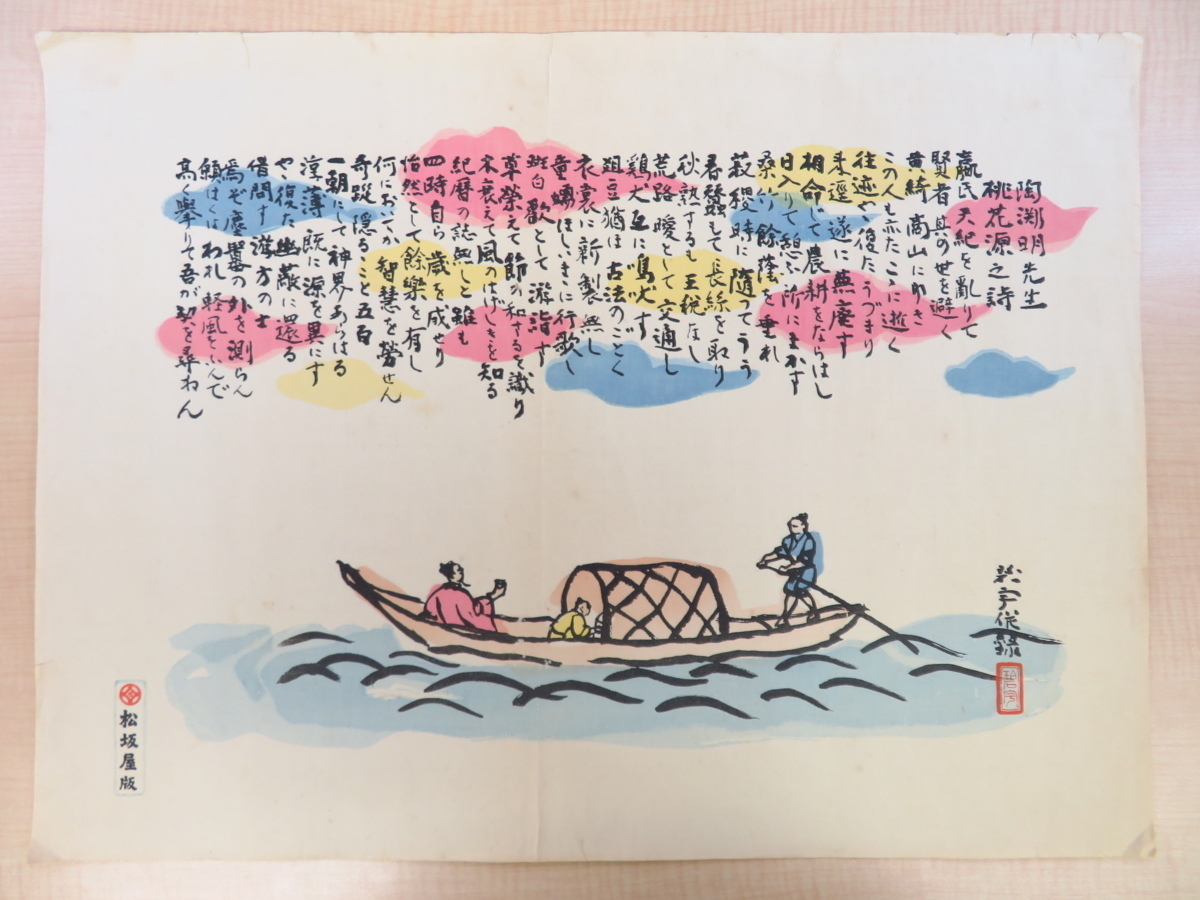 陶渊明先生
桃花源之詩
嬴氏天紀を亂りて
賢者其の世を避く
黄綺商山にゆき
この人も亦たここに逝く
往迹やゝ復たうづまり
来逕遂に蕪廃す
相命じて農耕をならはし
日入りて憩ふ所にまかす
桑竹餘蔭を垂れ
菽稷時に隨つてうう
春蠶もて長絲を取り
秋熟するも王税なし
荒路曖として交通し
鶏犬互に鳴吠す
俎豆猶ほ古法のごとく
衣裳に新製無し
童孺ほしいまゝに行歌し
斑白歡として游詣す
草榮えて節の和するを識り
木衰えて風のはげしきを知る
紀暦の誌無しと雖も
四時自ら歳を成せり
怡然として餘樂を有し
何においてか智慧を勞せん
奇蹤隠ること五百
一朝にして神界あらはる
淳薄既に源を異にす
やゝ復た幽蔽に還る
借問す游方の士
焉ぞ塵囂の外を測らん
願はくはわれ軽風をふんで
髙く擧りて吾が契を尋ねん
松坂屋版